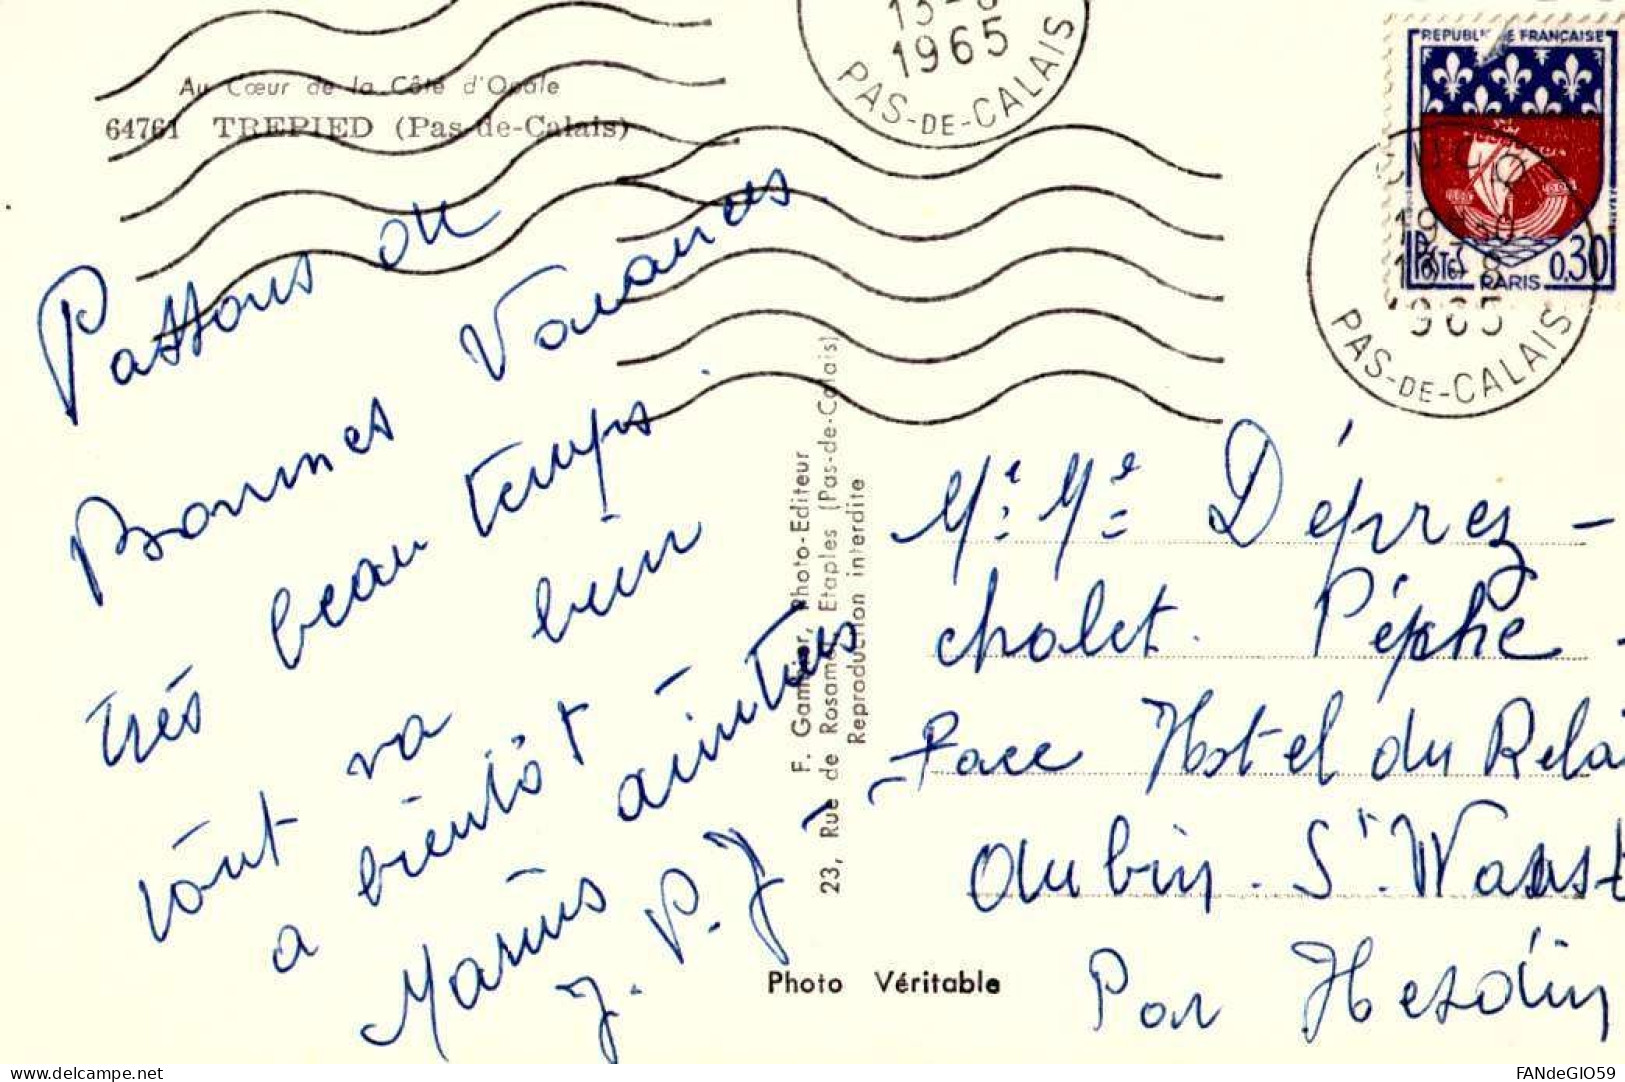 Au Cœur de la Côte d'Opale
64761 TREPIED (Pas-de-Calais)
13-8
1965
PAS-DE-CALAIS
REPUBLIQUE FRANÇAISE
POSTES
PARIS
0.30
19H30
1965
PAS-DE-CALAIS
Passons
Bonnes Vacances
très beau temps
tout va bien
a bientôt amitiés
Marius
J. P. J
F. Gamblier, Photo-Editeur
23, Rue de Rosamel, Etaples (Pas-de-Calais)
Reproduction interdite
Photo Véritable
Mr Me Déprez -
chalet.
Face Hostel du Relai
Aubin. St. Waast
Par Hesdin
delcampe.net
FANdeGIO59